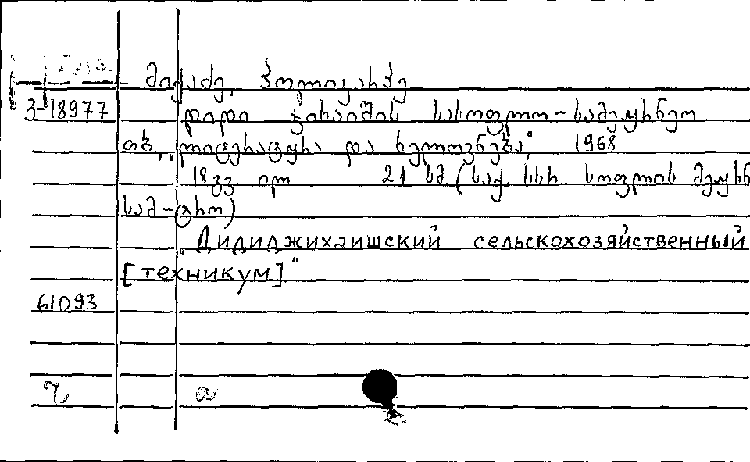 მიქაძე, პოლიკარპე
3 18977 დიდი ჯიხაიშის სასოფლო-სამეურნეო
თბ., „ლიტერატურა და ხელოვნება", 1968
18 გვ. ილ 21 სმ (საქ. სსრ სოფლის მეურნ
სამ-ტრო)
"Дидиджихаишский сельскохозяйственный
[техникум]."
61093
ა